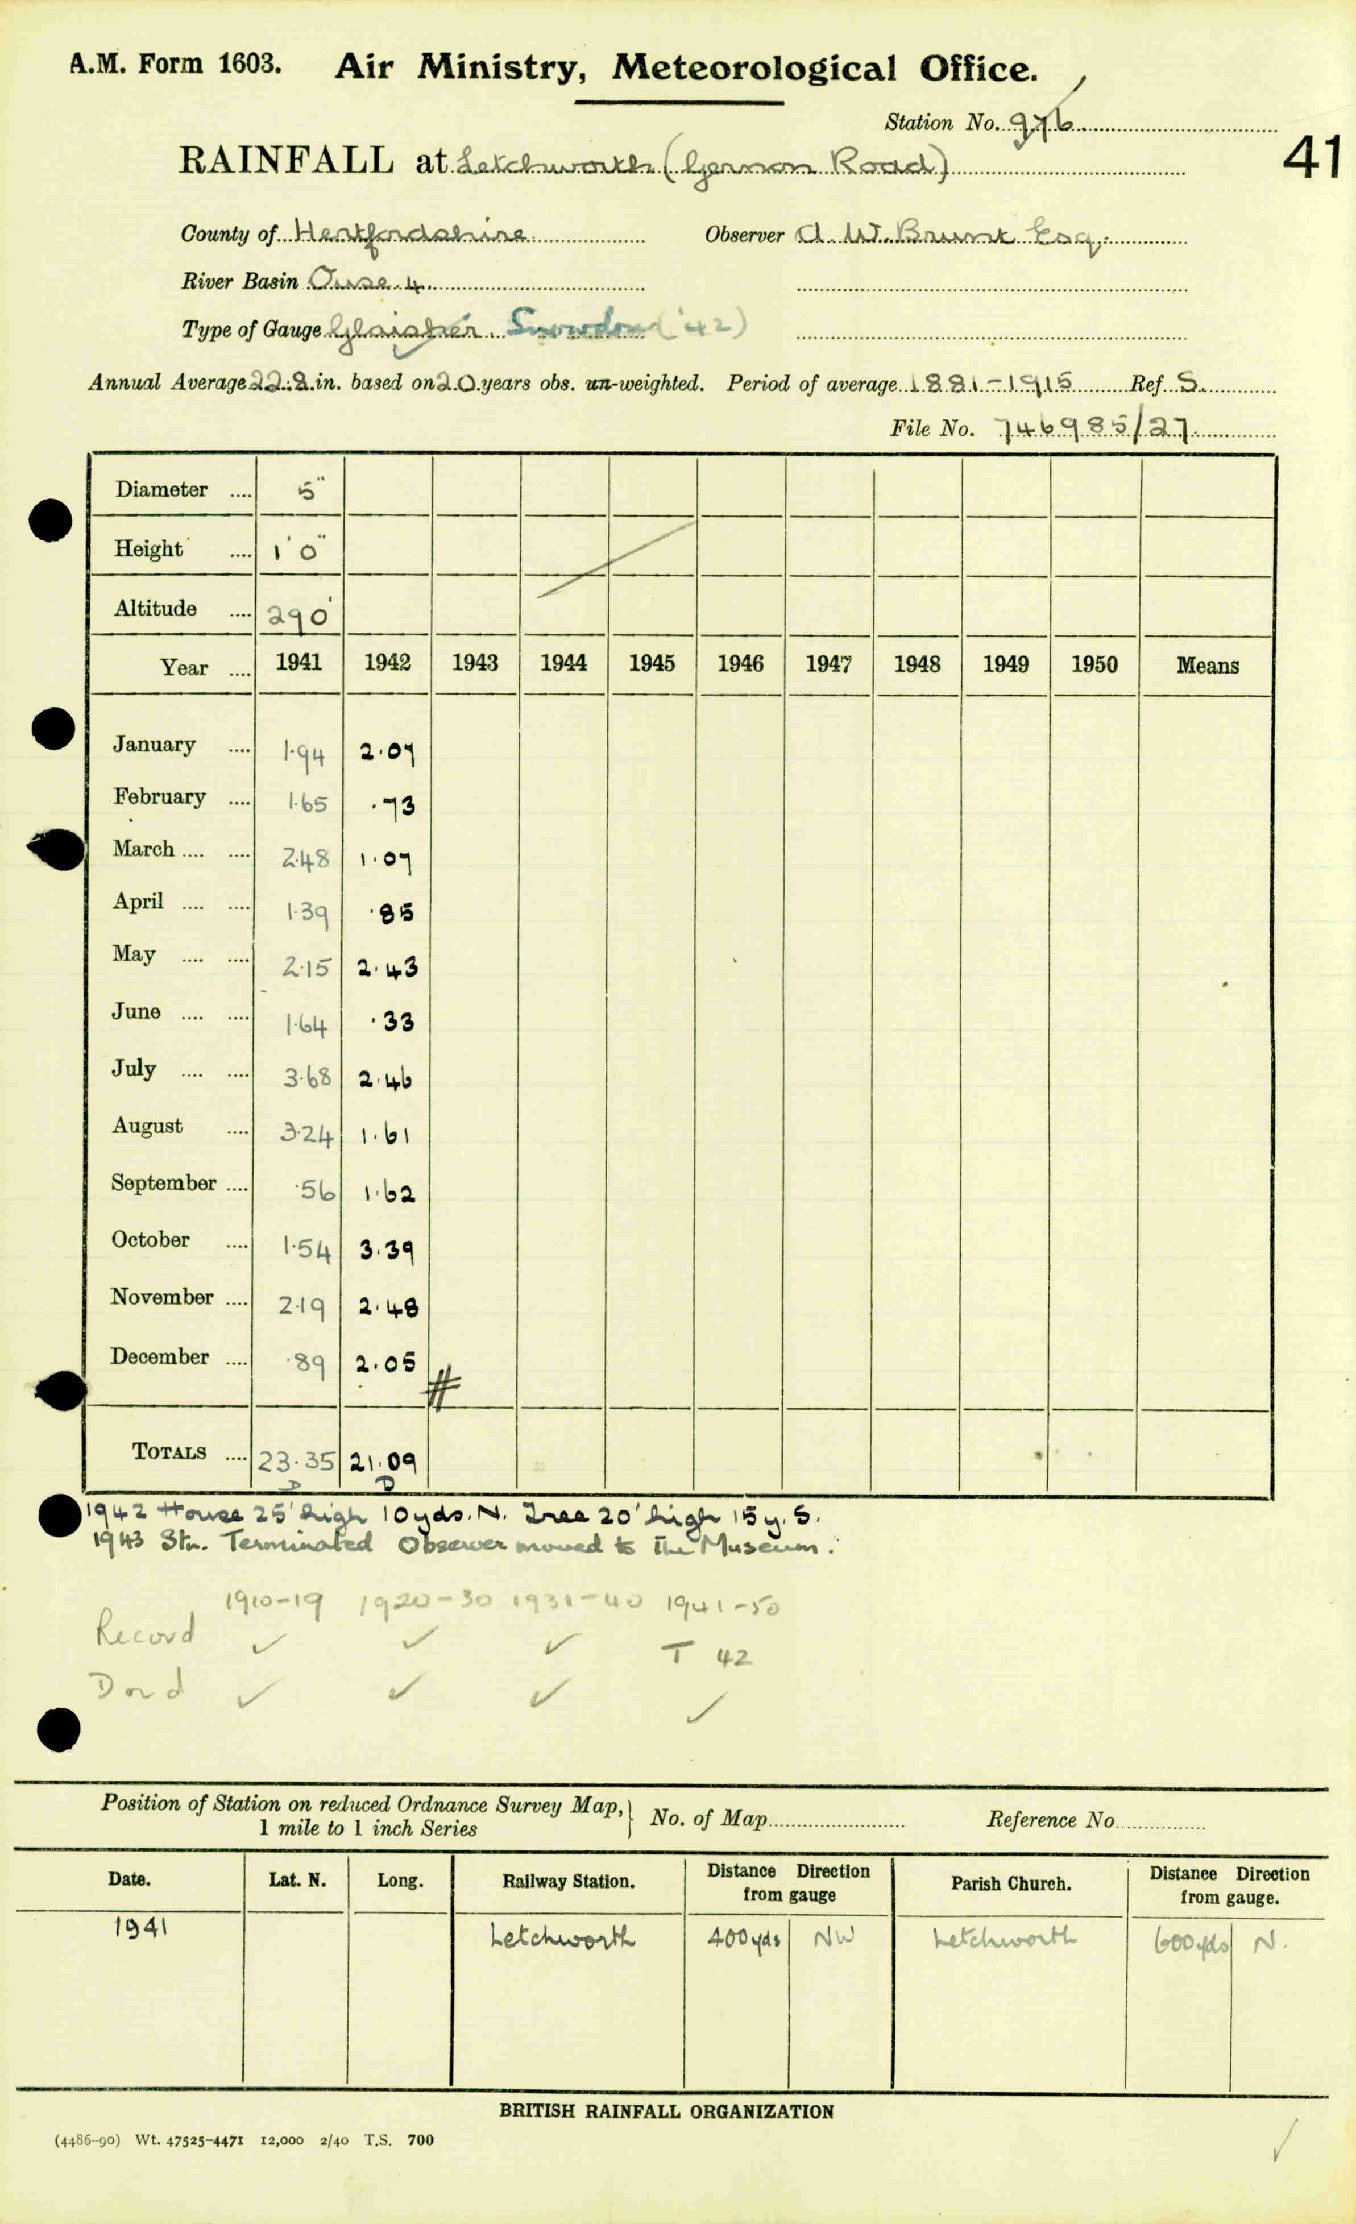 A.M. Form 1603. Air Ministry, Meteorological Office.
Station No. 976
41
RAINFALL at Letchworth (Gernon Road)
County of Hertfordshire Observer A. W. Brunt Esq.
River Basin Ouse 4.
Type of Gauge Glaisher. Snowdon ('42)
Annual Average 22.8 in. based on 20 years obs. un-weighted. Period of average 1881-1915 Ref. S.
File No. 746985/27
Diameter .... 5"
Height .... 1'0"
Altitude .... 290'
Year .... 1941 1942 1943 1944 1945 1946 1947 1948 1949 1950 Means
January .... 1.94 2.07
February .... 1.65 .73
March .... .... 2.48 1.07
April .... .... 1.39 .85
May .... .... 2.15 2.43
June .... .... 1.64 .33
July .... .... 3.68 2.46
August .... 3.24 1.61
September .... .56 1.62
October .... 1.54 3.39
November .... 2.19 2.48
December .... .89 2.05
#
TOTALS .... 23.35 21.09
D D
1942 House 25' high 10 yds. N. Tree 20' high 15 y. S.
1943 Stn. Terminated Observer moved to The Museum.
1910-19 1920-30 1931-40 1941-50
Record ✓ ✓ ✓ T 42
D ✓ ✓ ✓ ✓
Position of Station on reduced Ordnance Survey Map, 1 mile to 1 inch Series } No. of Map Reference No.
Date. Lat. N. Long. Railway Station. Distance Direction from gauge Parish Church. Distance Direction from gauge.
1941 Letchworth 400 yds NW Letchworth 600 yds N.
BRITISH RAINFALL ORGANIZATION
(4486-90) Wt. 47525-4471 12,000 2/40 T.S. 700